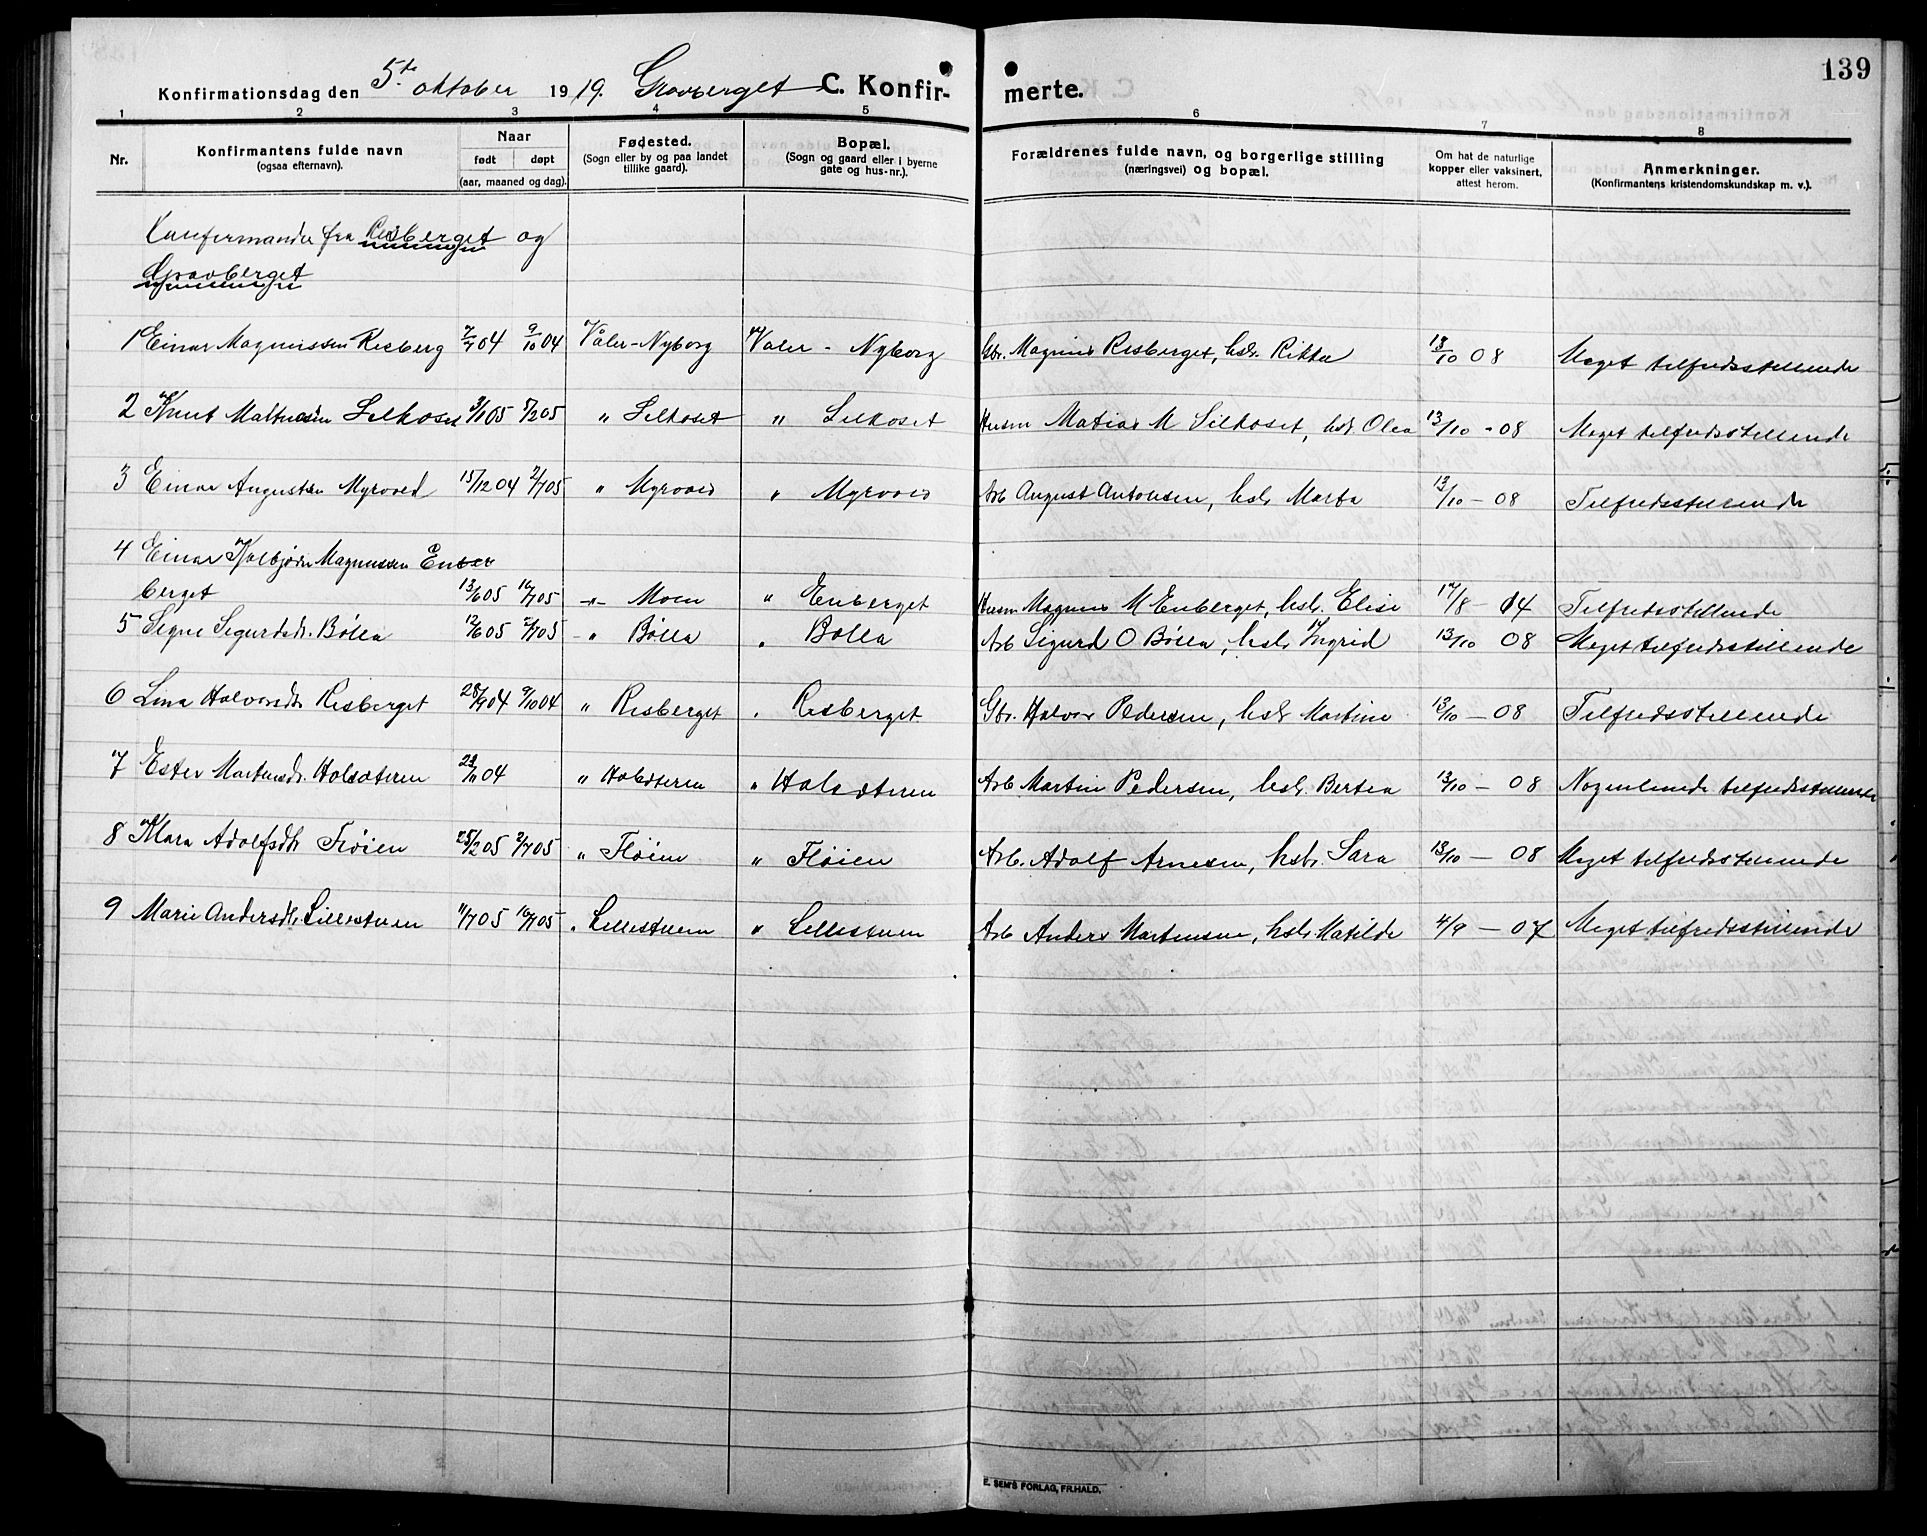 139
Konfirmationsdag den 5te oktober 1919. Gravberget C. Konfir- merte.
1 2 3 4 5 6 7 8
Nr. Konfirmantens fulde navn (ogsaa efternavn). Naar født døpt (aar, maaned og dag). Fødested. (Sogn eller by og paa landet tillike gaard). Bopæl. (Sogn og gaard eller i byerne gate og hus-nr.). Forældrenes fulde navn, og borgerlige stilling (næringsvei) og bopæl. Om hat de naturlige kopper eller vaksinert, attest herom. Anmerkninger. (Konfirmantens kristendomskundskap m. v.).
Konfermander fra Risberget og
Gravberget
1 Einar Magnussen Risberg 04 9/10 04 Våler - Nyborg Våler - Nyborg Gbr. Magnus Risberget, hst. Rikka 13/10 08 Meget tilfredsstillende
2 Knut Silkoset 3/1 05 5/2 05 " Silkoset " Silkoset Husm Matias M Silkoset, hst. Olea 13/10 - 08 Meget tilfredsstillende
3 Einar Augustsen Myroved 15/12 04 2/7 05 " Myroved " Myroved Arb August Antonsen, hst. Marta 13/10 - 08 Tilfredsstillende
4 Einar Kolbjørn Magnussen En
berget 13/6 05 16/7 05 -"- Moen " Enberget Husm Magnus M Enberget, hst. Elise 17/8 - 14 Tilfredsstillende
5 Signe Sigurdsdt. Bølla 12/6 05 2/7 05 -" Bølla " Bølla Arb Sigurd O Bølla, hst. Ingrid 13/10 08 Meget tilfredsstillende
6 Lina Halvorsdt Risberget 28/9 04 9/10 04 " Risberget " Risberget Gbr. Halvor Pedersen, hst. Martine 13/10 - 08 Tilfredsstillende
7 Ester Martinsdt. Holsæteren /11 04 " Holsæteren " Holsæteren Arb Martin Pedersen, hst. Bertea 13/10 - 08 Nogenlunde tilfredsstillende
8 Klara Adolfsdt Fløien 25/2 05 2/7 05 " Fløien " Fløien Arb. Adolf Arnesen, hst. Sara 13/10 - 08 Meget tilfredsstillende
9 Marie Andersdt. Lillestuen 11/7 05 16/7 05 " Lillestuen " Lillestuen Arb Anders Martinsen, hst. Matilde 4/9 - 07 Meget tilfredsstillende
E. SEM'S FORLAG, FR.HALD.